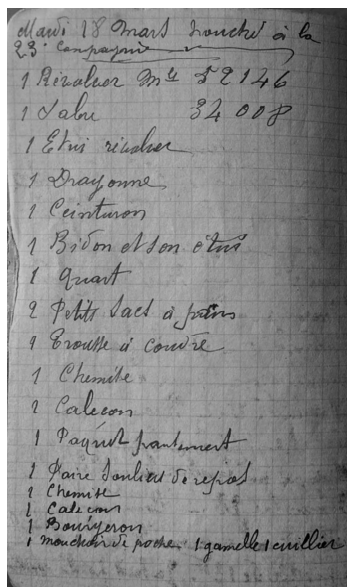 Mardi 18 Mars touché à la
23e compagnie
1 Révolver Mle 52146
1 Sabre 34008
1 Etui révolver
1 Dragonne
1 Ceinturon
1 Bidon et son étui
1 quart
2 Petits Sacs à
1 Trousse à coudre
1 Chemise
1 Calecon
1 Paquet pansement
1 Paire Souliers de repos
1 Chemise
1 Calecon
1 Bourgeron
1 mouchoir de poche 1 gamelle 1 cuillier